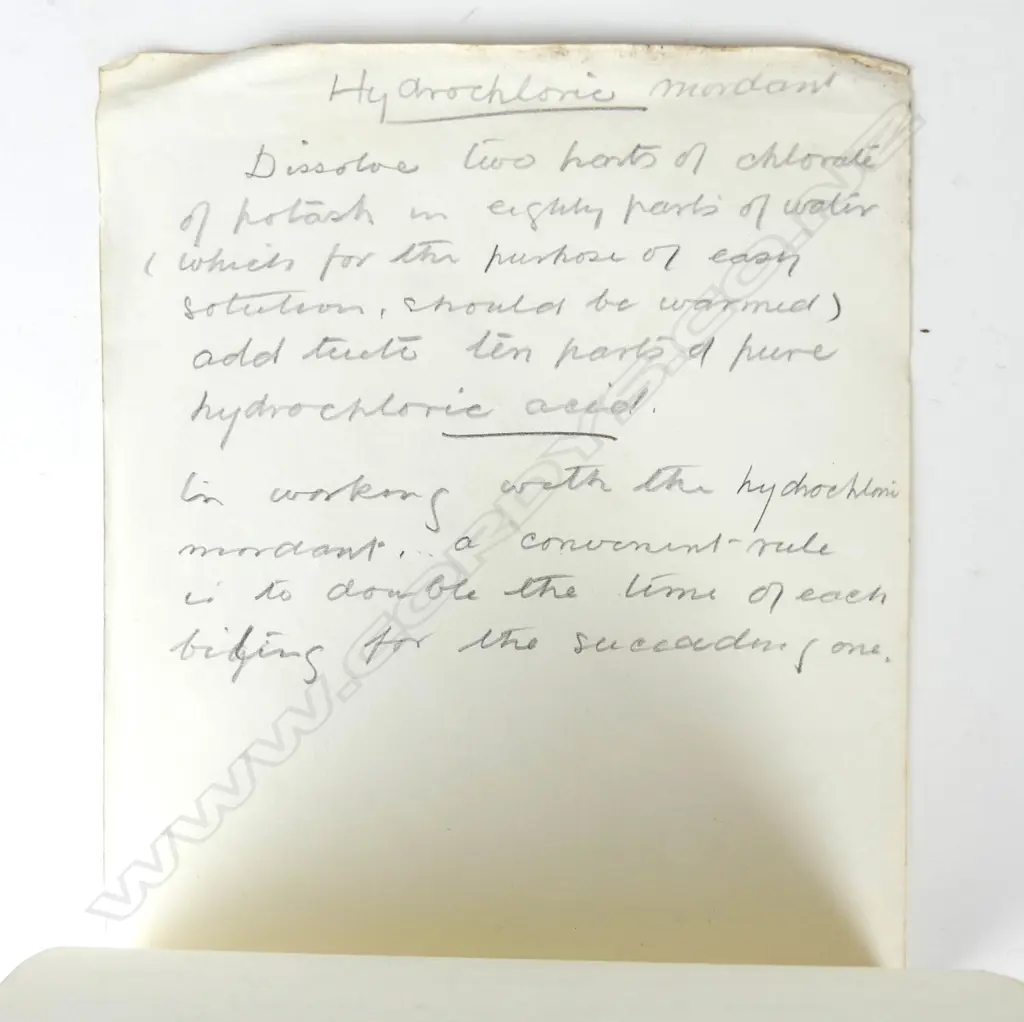 Hydrochloric mordant
Dissolve two parts of chlorate
of potash in eighty parts of water
( which for the purpose of easy
solution, should be warmed)
add ten parts of pure
hydrochloric acid.
In working with the hydrochloric
mordant, a convenient rule
is to double the time of each
biting for the succeeding one.
WWW.CORDYS.CO.NZ